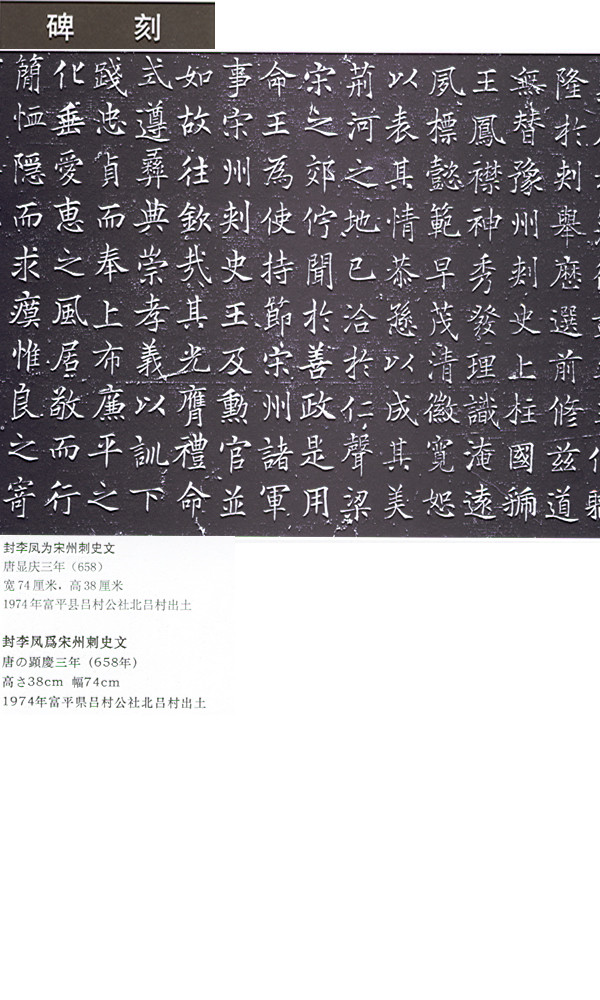 碑 刻
隆於刾舉歷選前修茲道
無替豫州刾史上柱國虢
王鳳襟神秀發理識淹遠
夙標懿範早茂清徽寬恕
以表其情恭遜以成其美
荊河之地已洽於仁聲梁
宋之郊佇聞於善政是用
命王為使持節宋州諸軍
事宋州刾史王及勳官並
如故往欽哉其光膺禮命
式遵彝典崇孝義以訓下
踐忠貞而奉上布廉平之
化垂愛惠之風居敬而行
簡恤隱而求瘼惟良之寄
封李凤为宋州刺史文
唐显庆三年（658）
宽74厘米，高38厘米
1974年富平县吕村公社北吕村出土
封李凤爲宋州刺史文
唐の顕慶三年（658年）
高さ38cm 幅74cm
1974年富平県吕村公社北吕村出土